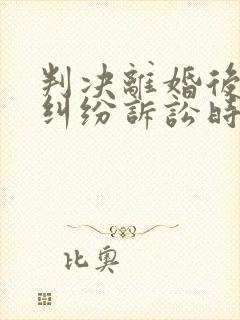 判决離婚後
纠纷訴訟時
比奥